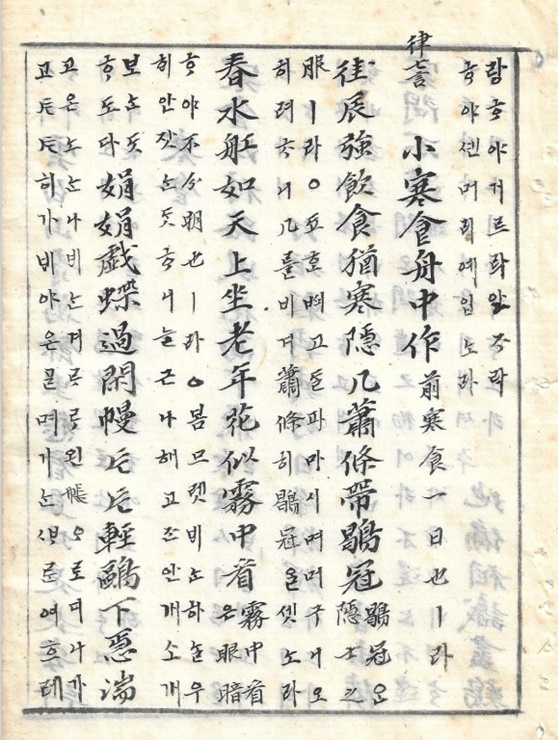 랑ᄒᆞ야거르락안ᄌᆞ락
ᄒᆞ야셴머리예입노라
律
小寒食舟中作 前寒食一日也ㅣ라
佳辰強飲食猶寒隱几蕭條帶鶡冠 鶡冠ᄋᆞᆫ
隱士之
服ㅣ라○됴ᄒᆞᆫᄣᅢ고ᄃᆞᆯ파마시며머구니오
히려ᄎᆞ니几를비겨蕭條히鶡冠을셋노라
春水舡如天上坐老年花似霧中看 霧中看
은眼暗
ᄒᆞ야不分明也ㅣ라○봄므렛ᄇᆡ노하ᄂᆞᆯ우
희안잣ᄂᆞᆫᄃᆞᆺᄒᆞ니늘근나해고ᄌᆞᆫ안개소개
보ᄂᆞᆫᄃᆞᆺ
ᄒᆞ도다
娟娟戱蝶過閑幔片片輕鷗下急湍
고온노ᄂᆞᆫ나ᄇᆡᄂᆞᆫ겨르ᄅᆞ왼帳ᄋᆞ로디나가
고片片히가ᄇᆡ야온ᄀᆞᆯ며기ᄂᆞᆫᄲᆞᄅᆞᆫ여흐레